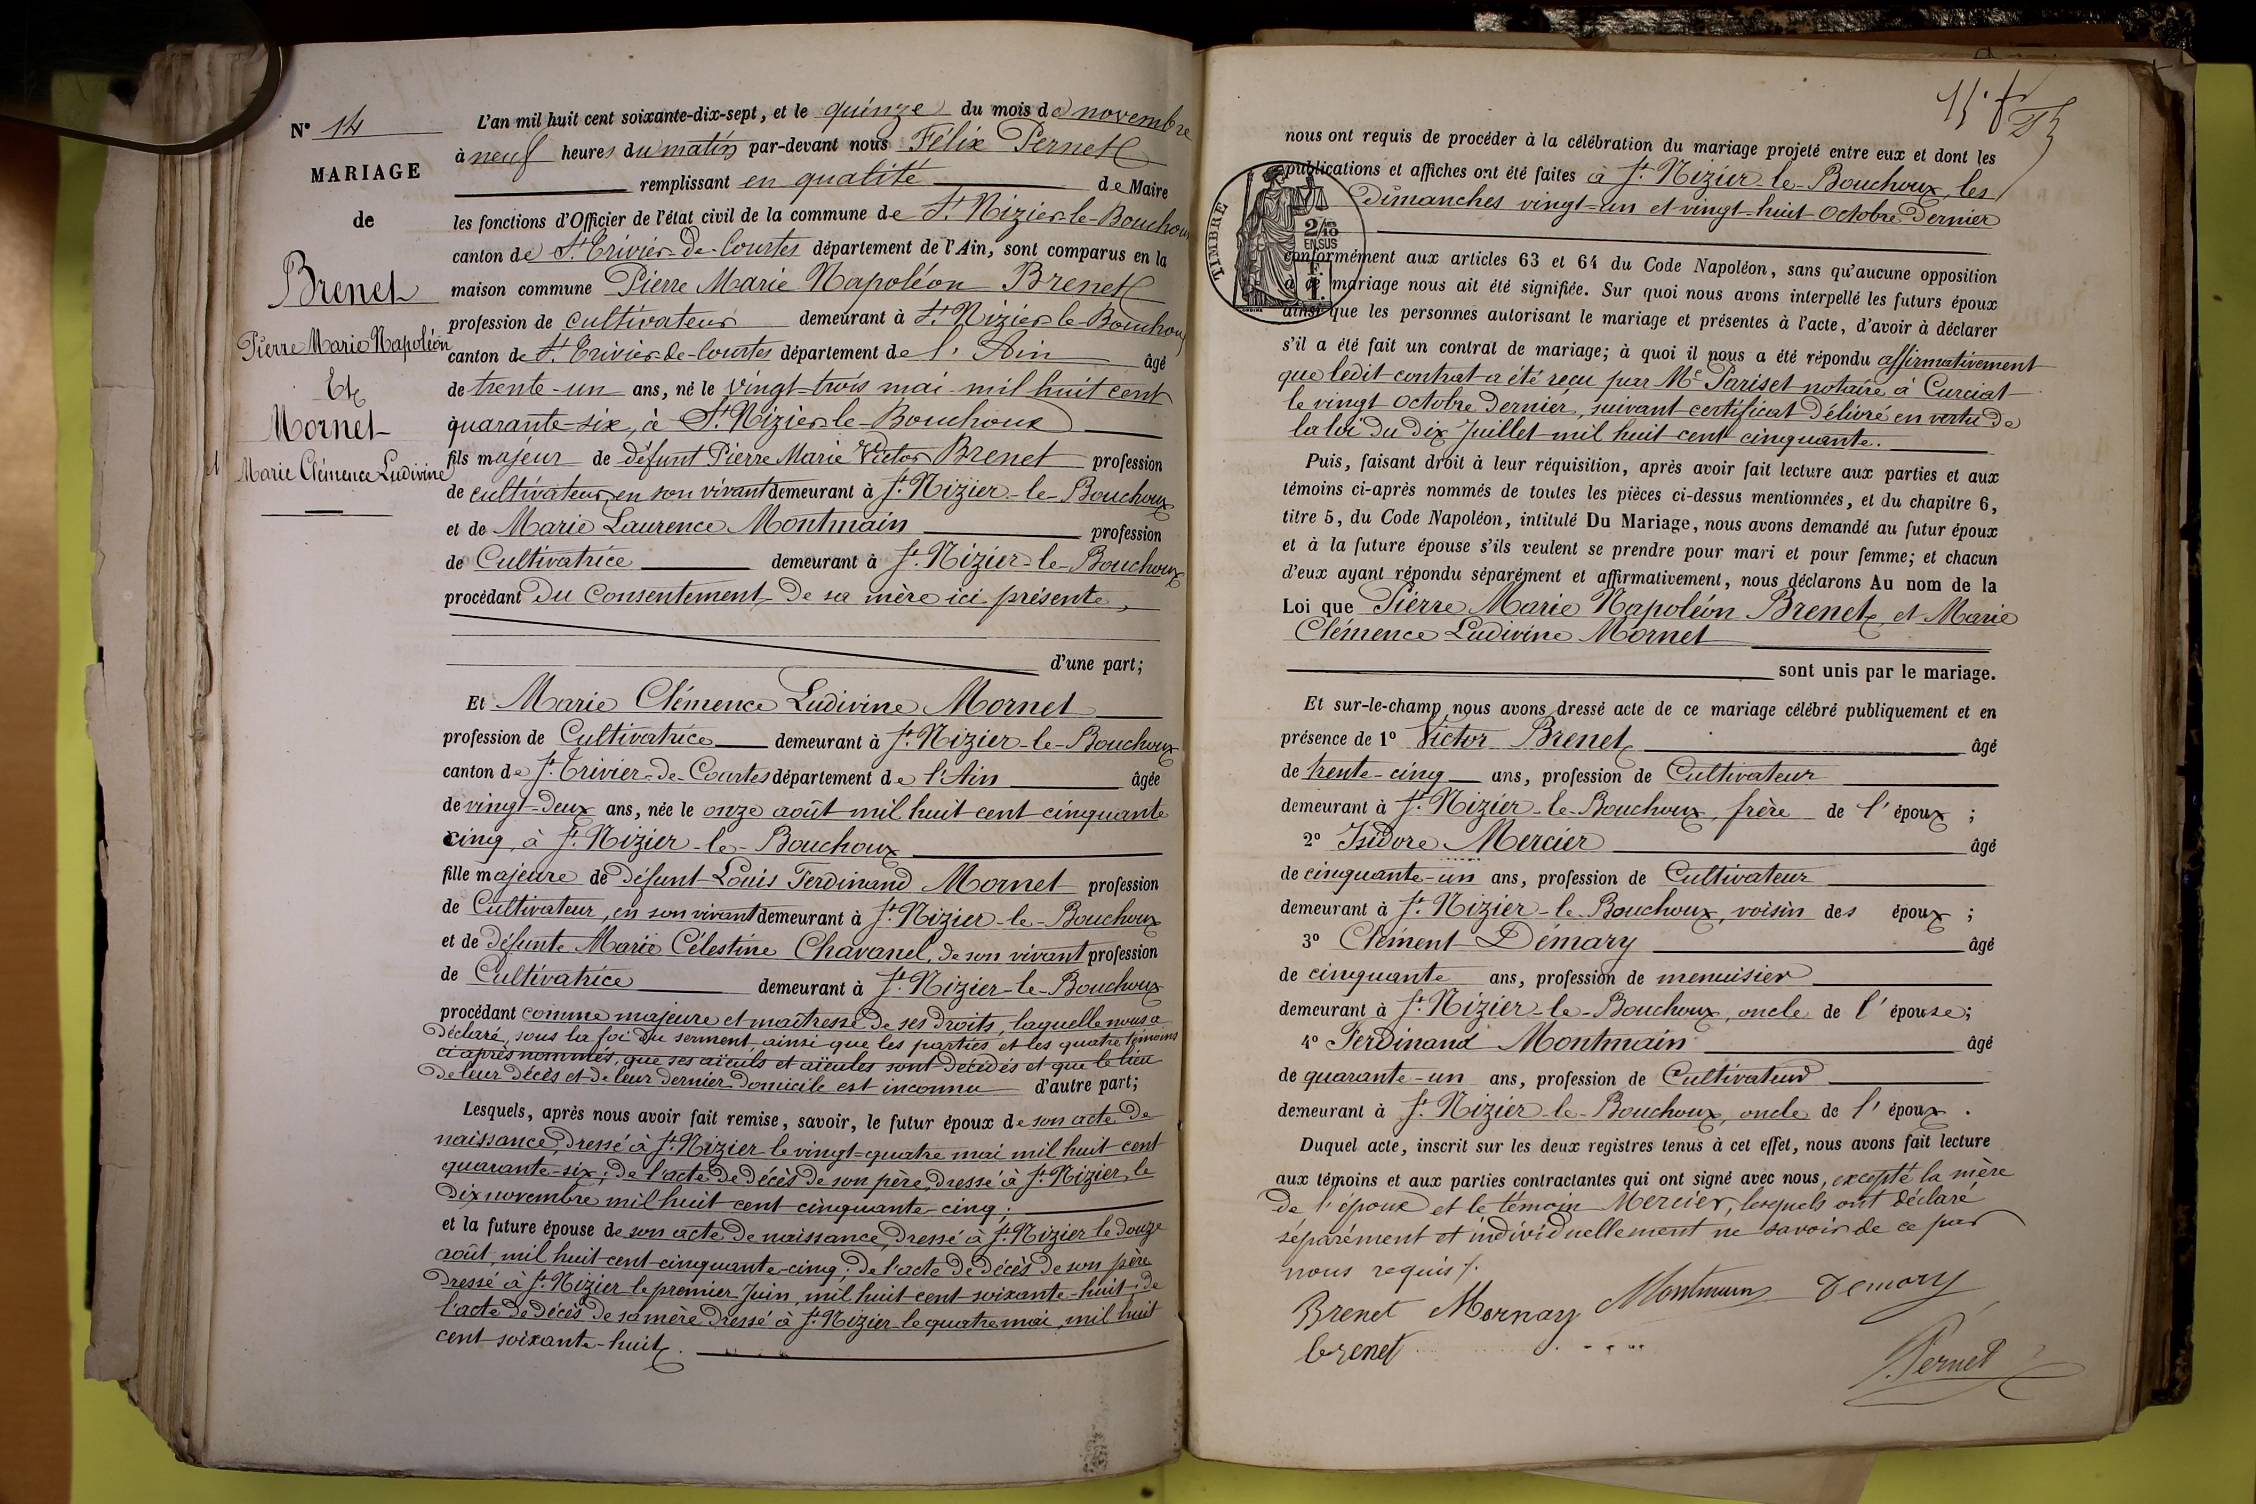 N° 14
MARIAGE
de
Brenet
Pierre Marie Napoléon
Et
Mornet
Marie Clémence Ludivine
L'an mil huit cent soixante-dix-sept, et le quinze du mois de novembre
à neuf heures du matin par-devant nous Félix Pernet
remplissant en qualité de Maire
les fonctions d'Officier de l'état civil de la commune de St Nizier-le-Bouchoux
canton de St Trivier-de-Courtes département de l'Ain, sont comparus en la
maison commune Pierre Marie Napoléon Brenet
profession de cultivateur demeurant à St Nizier-le-Bouchoux
canton de St Trivier-de-Courtes département de l'Ain âgé
de trente-un ans, né le vingt-trois mai mil huit cent
quarante-six, à St Nizier-le-Bouchoux
fils majeur de défunt Pierre Marie Victor Brenet profession
de cultivateur en son vivant demeurant à St Nizier-le-Bouchoux
et de Marie Laurence Montmain profession
de Cultivatrice demeurant à St Nizier-le-Bouchoux
procédant du consentement de sa mère ici présente,
d'une part;
Et Marie Clémence Ludivine Mornet
profession de Cultivatrice demeurant à St Nizier-le-Bouchoux
canton de St Trivier-de-Courtes département de l'Ain âgée
de vingt-deux ans, née le onze août mil huit cent cinquante
cinq, à St Nizier-le-Bouchoux
fille majeure de défunt Louis Ferdinand Mornet profession
de Cultivateur, en son vivant demeurant à St Nizier-le-Bouchoux
et de défunte Marie Célestine Chavanel, de son vivant profession
de Cultivatrice demeurant à St Nizier-le-Bouchoux
procédant comme majeure et maîtresse de ses droits, laquelle nous a
déclaré, sous la foi du serment, ainsi que les parties et les quatre témoins
ci après nommés, que ses aïeuls et aïeules sont décédés et que le lieu
de leur décès et de leur dernier domicile est inconnu d'autre part;
Lesquels, après nous avoir fait remise, savoir, le futur époux de son acte de
naissance, dressé à St Nizier le vingt-quatre mai mil huit cent
quarante-six; de l'acte de décès de son père, dressé à St Nizier, le
dix novembre mil huit cent cinquante-cinq;
et la future épouse de son acte de naissance, dressé à St Nizier le douze
août, mil huit-cent-cinquante-cinq; de l'acte de décès de son père
dressé à St Nizier le premier Juin, mil huit-cent-soixante-huit; de
l'acte de décès de sa mère dressé à St Nizier le quatre mai, mil huit
cent soixante-huit.
nous ont requis de procéder à la célébration du mariage projeté entre eux et dont les
publications et affiches ont été faites à St Nizier-le-Bouchoux, les
Dimanches vingt-un et vingt-huit Octobre dernier
TIMBRE
2/10
EN SUS
conformément aux articles 63 et 64 du Code Napoléon, sans qu'aucune opposition
à ce mariage nous ait été signifiée. Sur quoi nous avons interpellé les futurs époux
ainsi que les personnes autorisant le mariage et présentes à l'acte, d'avoir à déclarer
s'il a été fait un contrat de mariage; à quoi il nous a été répondu affirmativement
que ledit contrat a été reçu par Me Pariset notaire à Curciat
le vingt Octobre dernier, suivant certificat délivré en vertu de
la loi du dix Juillet mil huit cent cinquante.
Puis, faisant droit à leur réquisition, après avoir fait lecture aux parties et aux
témoins ci-après nommés de toutes les pièces ci-dessus mentionnées, et du chapitre 6,
titre 5, du Code Napoléon, intitulé Du Mariage, nous avons demandé au futur époux
et à la future épouse s'ils veulent se prendre pour mari et pour femme; et chacun
d'eux ayant répondu séparément et affirmativement, nous déclarons Au nom de la
Loi que Pierre Marie Napoléon Brenet, et Marie
Clémence Ludivine Mornet
sont unis par le mariage.
Et sur-le-champ nous avons dressé acte de ce mariage célébré publiquement et en
présence de 1° Victor Brenet âgé
de trente-cinq ans, profession de Cultivateur
demeurant à St Nizier-le-Bouchoux, frère de l'époux;
2° Isidore Mercier âgé
de cinquante-un ans, profession de Cultivateur
demeurant à St Nizier-le-Bouchoux, voisin des époux;
3° Clément Démary âgé
de cinquante ans, profession de menuisier
demeurant à St Nizier-le-Bouchoux, oncle de l'épouse;
4° Ferdinand Montmain âgé
de quarante-un ans, profession de Cultivateur
demeurant à St Nizier-le-Bouchoux, oncle de l'époux.
Duquel acte, inscrit sur les deux registres tenus à cet effet, nous avons fait lecture
aux témoins et aux parties contractantes qui ont signé avec nous, excepté la mère
de l'époux et le témoin Mercier, lesquels ont déclaré
séparément et individuellement ne savoir de ce par
nous requis.
Brenet Mornay Montmain Demary
brenet
Pernet